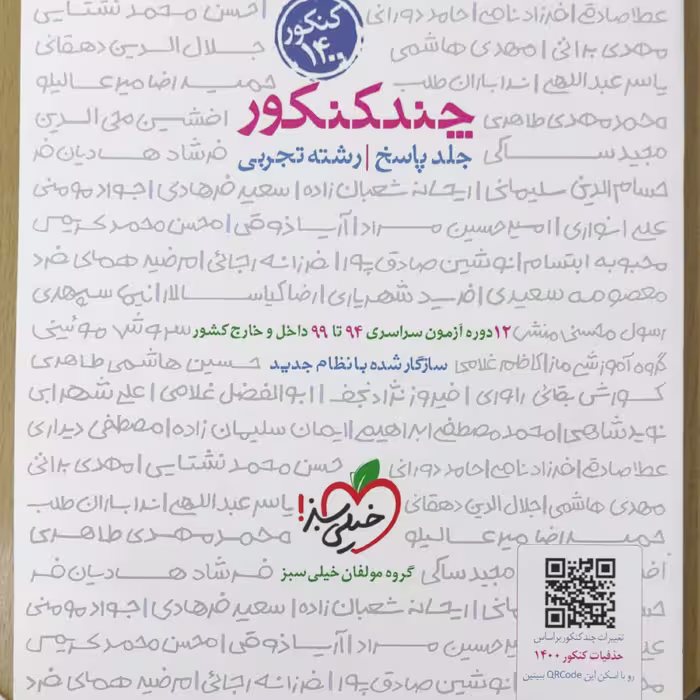 عطا صادقی | فرزاد نامی | حامد دورانی
احسن محمد نشتایی
کنکور
۱۴۰۰
مهدی براتی | مهدی هاشمی
جلال الدین دهقانی
یاسر عبداللهی | ندا باران طلب
حمیدرضا میرعالیلو
چند کنکور
محمدمهدی طاهری
افشین محی الدین
مجید ساکی
جلد پاسخ | رشته تجربی
فرشاد هادیان فر
حسام الدین سلیمانی | ریحانه شعبان زاده | سعید فرهادی | جواد مومنی
علی انواری | امیرحسین مراد | آریا ذوقی | محسن محمدکریمی
محبوبه ابتسام | نوشین صادق پور | فرزانه رجائی | امرضیه همای فرد
معصومه سعیدی | فرید شهریاری | رضا کیاسالار | نیما سپهری
رسول محسنی منش
۱۲ دوره آزمون سراسری ۹۴ تا ۹۹ داخل و خارج کشور
سروش موئینی
گروه آموزشی ماز | کاظم غلامی
سازگار شده با نظام جدید
حسین هاشمی طاهری
کورش بقائی راوری | فیروز نژادنجف | ابوالفضل غلامی | علی شهرابی
نوید شاهی | محمد مصطفی ابراهیمی | ایمان سلیمان زاده | مصطفی دیداری
عطا صادقی | فرزاد نامی | حامد دورانی
حسن محمد نشتایی | مهدی براتی
مهدی هاشمی | جلال الدین دهقانی
یاسر عبداللهی | ندا باران طلب
خیلی سبز!
حمیدرضا میرعالیلو
محمدمهدی طاهری
مجید ساکی
گروه مولفان خیلی سبز
فرشاد هادیان فر
شعبان زاده | سعید فرهادی | جواد مومنی
امیرحسین مراد | آریا ذوقی | محسن محمدکریمی
نوشین صادق پور | فرزانه رجائی | امرضیه همای فرد
تغییرات چند کنکور براساس
حذفیات کنکور ۱۴۰۰
رو با اسکن این QRCode ببینین